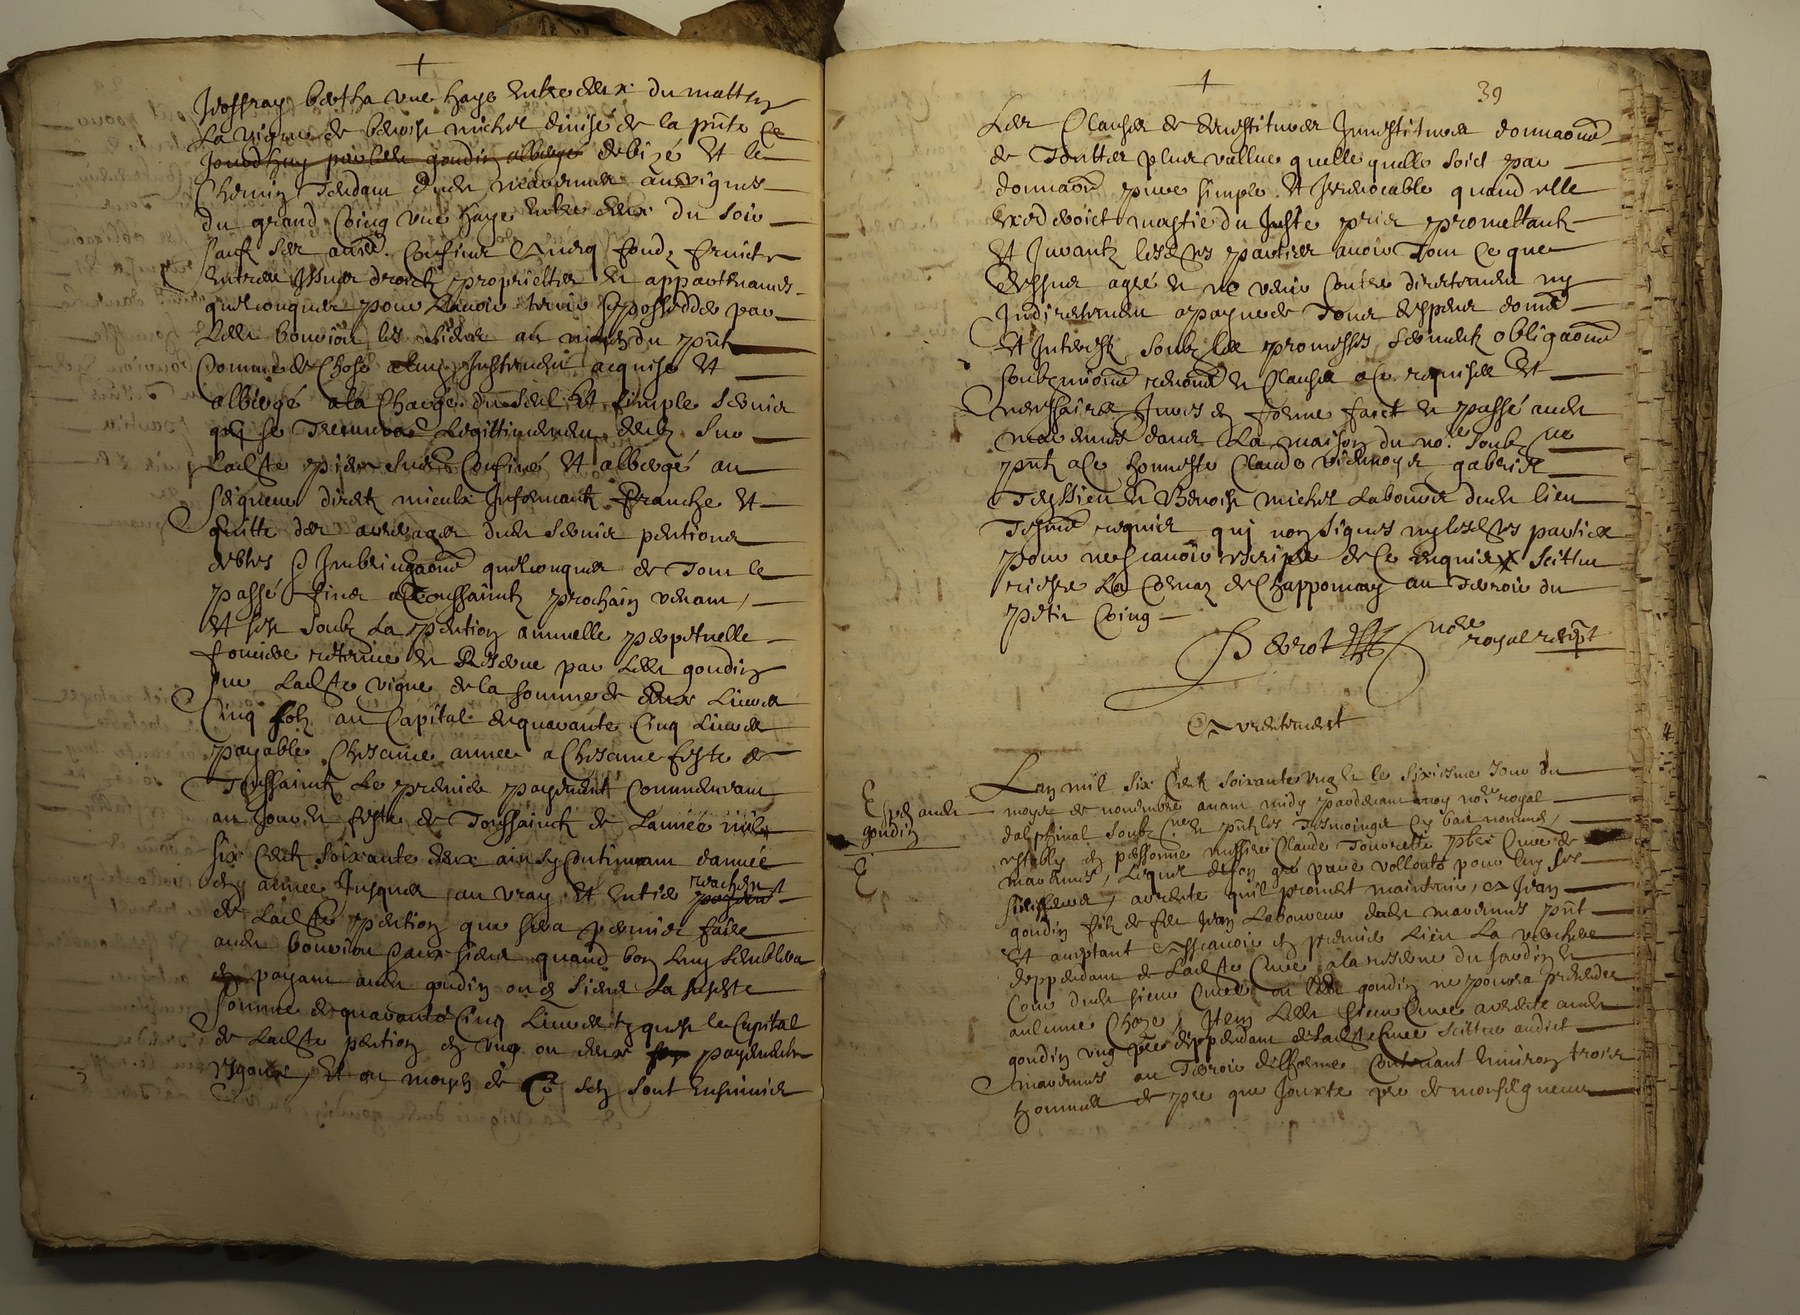 Joffray bertha une haye entre deux du mattin
La vigne de benoist michel divisé de la pnte ce
jourdhuy par ledt goudin albergé de bizé Et le
Chemin Tendant dudt marennes aux vignes
du grand Coing une haye entre deux du soir
sauf ses aultres Confins Avecq fondz fruictz
entrées Issues droictz proprietés et appartenances
quelconques pour Lavoir tenir et posseder par
Ledt bouvior les siens au moyen du pnt
Comme de Chose a luy justement acquise Et
albergé a la Charge du seul Et simple servis
qui se Treuvera Legittimement deub sur
Ladte piece susd Confiné Et albergé au
seigneur direct mieulx Informant franche Et
quitte des arrerages dudt servis pentions
debtes et Imbringaons quelconques de Tout le
passé finer a Toussainctz prochain venant,
Et sest soubz La pention annuelle perpetuelle
fonciere retenue et Reserve par Ledt goudin
sur Ladte vigne de la somme de deux Livres
Cinq solz au Capital de quarante Cinq Livres
payable Chascune annee a Chascune feste de
Toussainctz Le premier payement Commencant
au Jour et feste de Toussainctz de Lannée mil
six Centz soixante deux ainsy Continuant dannée
en annee Jusques au vray Et entier rachept
payement
de Ladte pention que sera permis faire
audt bouvior Et aux siens quand bon Luy semblera
en payant audt goudin ou es siens La susdte
somme de quarante Cinq Livres quest le Capital
de Ladte pention en ung ou deux payements
esgaux, Et au moyen de Ce sen sont Ensuivies
39
Les Clauses de devestitures Investitures donnaons
de Toutte plus vallue quelle quelle soict par
donnaon pure simple Et Irrevocable quand elle
excederoict moytié du Juste prix promettant
Et Jurantz lesdtes parties avoir Tout Ce que
dessus agré et ne venir Contre directement ny
Indirectement a payne de Tous despens domes
Et Interestz soubz les promesses sermentz obligaons
soubzmions renons et Clauses a Ce requises Et
necessaires Jures en forme faict et passé audt
marennes dans La maison du nore soubzne
pntz a Ce honneste Claude gabriel
Teyssier et Benoist michel Laboureur dudt lieu
Tesms requis qui non signes ny lesdtes parties
pour ne scavoir escripre de Ce enquis X scittue
riere La Comun de Chapponnay au Terroir du
petit Coing
Perrot nore royal recept
Arrentement
Lan mil six Centz soixante ung et le sixiesme Jour du
moys de novembre avant midy pardevant moy nore royal
dalphinal soubzne et pntz les Tesmoings Cy bas nommes,
estably en personne messire Claude Tourrette pbre Curé de
marennes, Lequel de son gré pure volonté pour Luy ses
successeurs, arrente quil promet maintenir, a Jean
goudin filz de feu Jean Laboureur dudt marennes pnt
Et aceptant Assavoir en premier Lieu La verchere
deppendant de Ladte Cure a la reserve du Jardin et
Cour dudt sieur Curé ou ledt goudin ne pourra pretendre
aulcune Choze, Item Ledt sieur Curé arrente audt
goudin ung pré deppendant de Ladte Cure scittue audict
marennes au Terroir Contenant Environ trois
hommes de pré que Jouxte pré de monseigneur
Exped audt
goudin